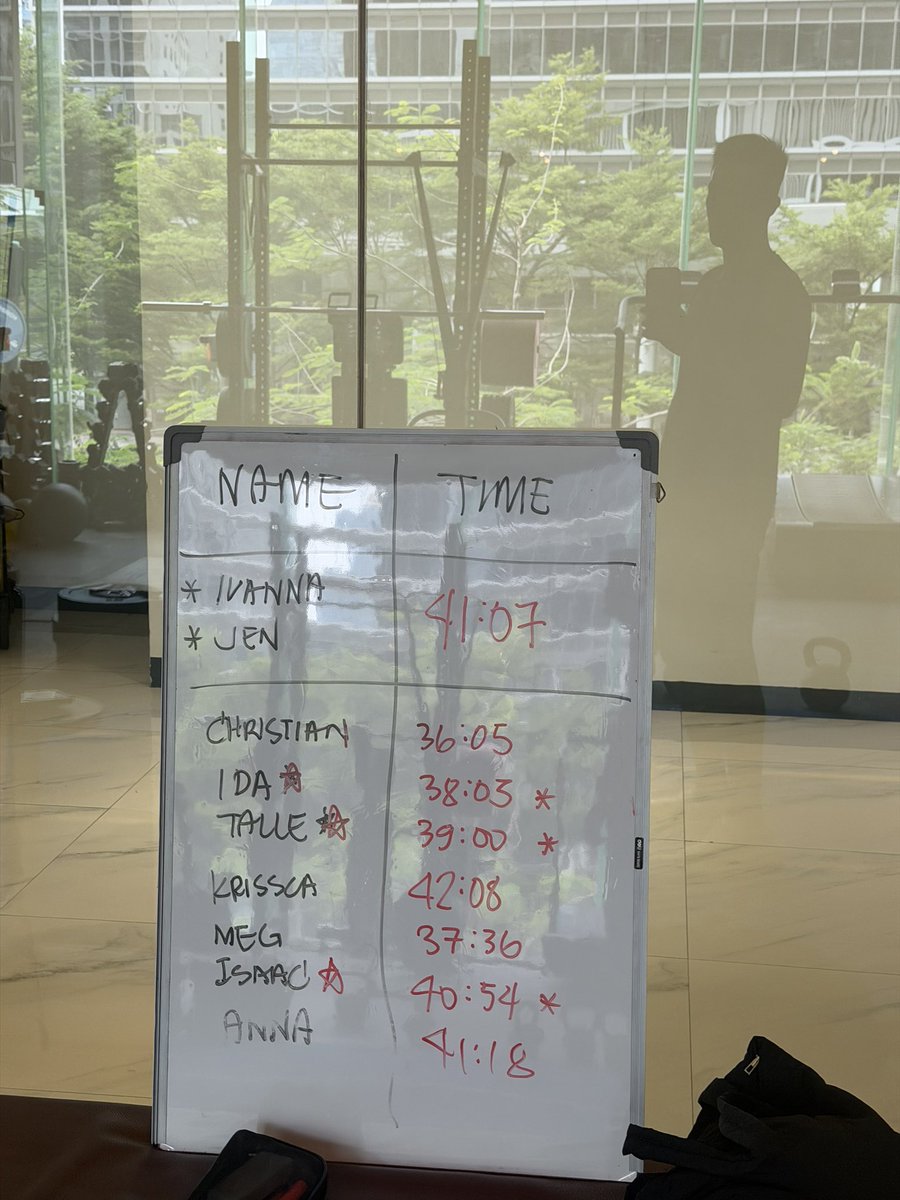 NAME TIME
* IVANNA
* JEN
41:07
CHRISTIAN 36:05
IDA ☆ 38:03 *
TALLE ☆ 39:00 *
KRISSCA 42:08
MEG 37:36
ISAAC ☆ 40:54 *
ANNA 41:18